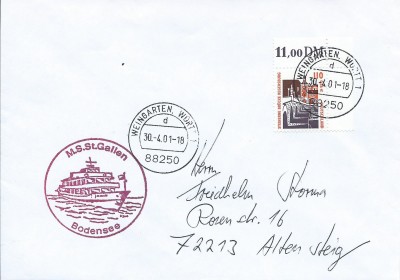 11,00 DM
WEINGARTEN, WÜRTT 1
d
30.-4.01-18
88250
110
WEINGARTEN, WÜRTT 1
d
30.-4.01-18
88250
M.S. St. Gallen
Bodensee
Herrn
Friedhelm Storma
Rosenstr. 16
72213 Altensteig